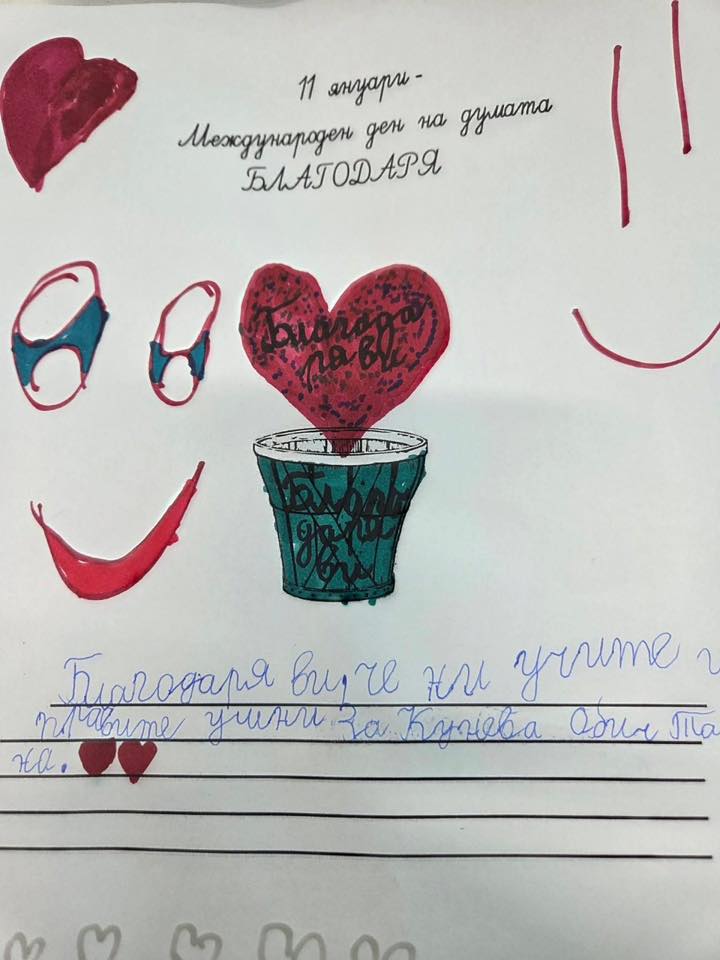 11 януари -
Международен ден на думата
БЛАГОДАРЯ
Благода
ря ви
Благо
даря
ви
Благодаря ви, че ни учите и
правите умни За Кунева Обич Та
на.